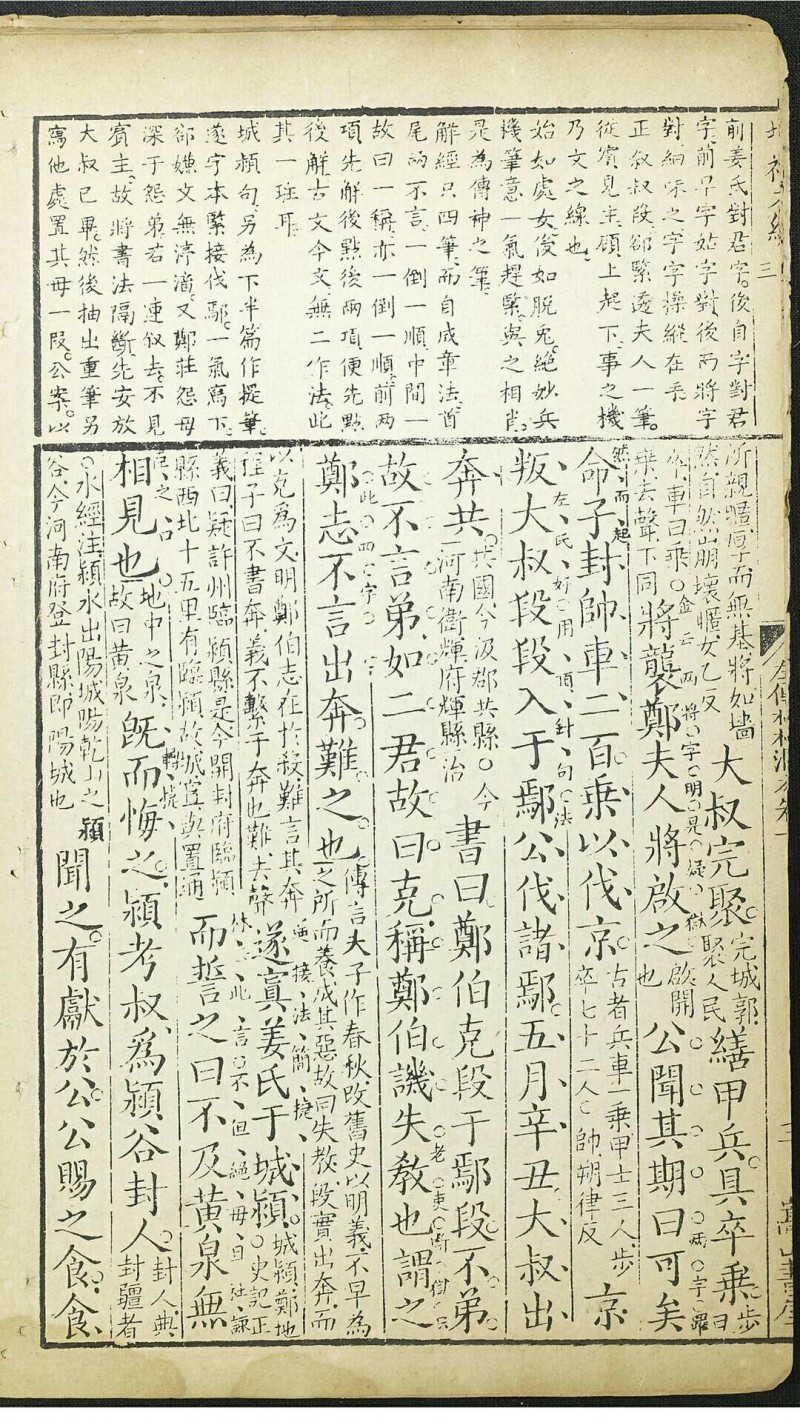 前姜氏對君字後自字對君
字前早字姑字對後兩將字
對細味之字字操縱在手
正敘叔段卻緊透夫人一筆
從賓見主頤上起下事之機
乃文之線也
始如處女後如脫兔絕妙兵
機筆意一氣趕緊與之相肖
是為傳神之筆
解經只四筆而自成章法首
尾兩不言一倒一順中間一
故曰一稱亦一倒一順前兩
項先解後點後兩項便先點
後解古文今文無二作法此
其一班耳
城潁句另為下半篇作提筆
遂字本緊接伐鄢一氣寫下
卻嫌文無渟滀又鄭莊怨母
深于怨弟若一連敘去不見
賓主故將書法隔斷先安放
大叔已畢然後抽出重筆另
寫他處置其母一段公案以
所親雖厚而無基將如墻
然自然崩壞暱女乙反
大叔完聚
完城郭
聚人民
繕甲兵具卒乘
步曰
卒車曰乘
乘去聲下同
將襲鄭夫人將啟之
啟開
也
公聞其期曰可矣
命子封帥車二百乘以伐京
古者兵車一乘甲士三人步
卒七十二人 帥朔律反
京
叛大叔段段入于鄢公伐諸鄢五月辛丑大叔出
奔共
共國今汲郡共縣 今
河南衞輝府輝縣治
書曰鄭伯克段于鄢段不弟
故不言弟如二君故曰克稱鄭伯譏失教也謂之
鄭志不言出奔難之也
傳言夫子作春秋改舊史以明義不早為
之所而養成其惡故曰失教段實出奔而
以克為文明鄭伯志在於殺難言其奔
程子曰不書奔義不繫于奔也難去聲
遂寘姜氏于城潁
城潁鄭地
史記正
義曰疑許州臨潁縣是今開封府臨潁
縣西北十五里有臨潁故城寘與置通
而誓之曰不及黃泉無
相見也
地中之泉
故曰黃泉
既而悔之潁考叔為潁谷封人
封人典
封疆者
水經注潁水出陽城陽乾山之潁
谷今河南府登封縣即陽城也
聞之有獻於公公賜之食食